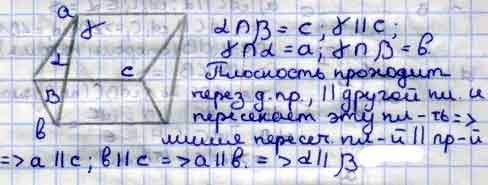 a
γ
α
c
β
b
α∩β = c; γ∥c;
γ∩α = a; γ∩β = b.
Плоскость проходит
через д.пр., ∥ другой пл. и
пересекает эту пл-ть =>
линия пересеч. пл-й ∥ пр-й
=> a∥c; b∥c => a∥b. => α∥β